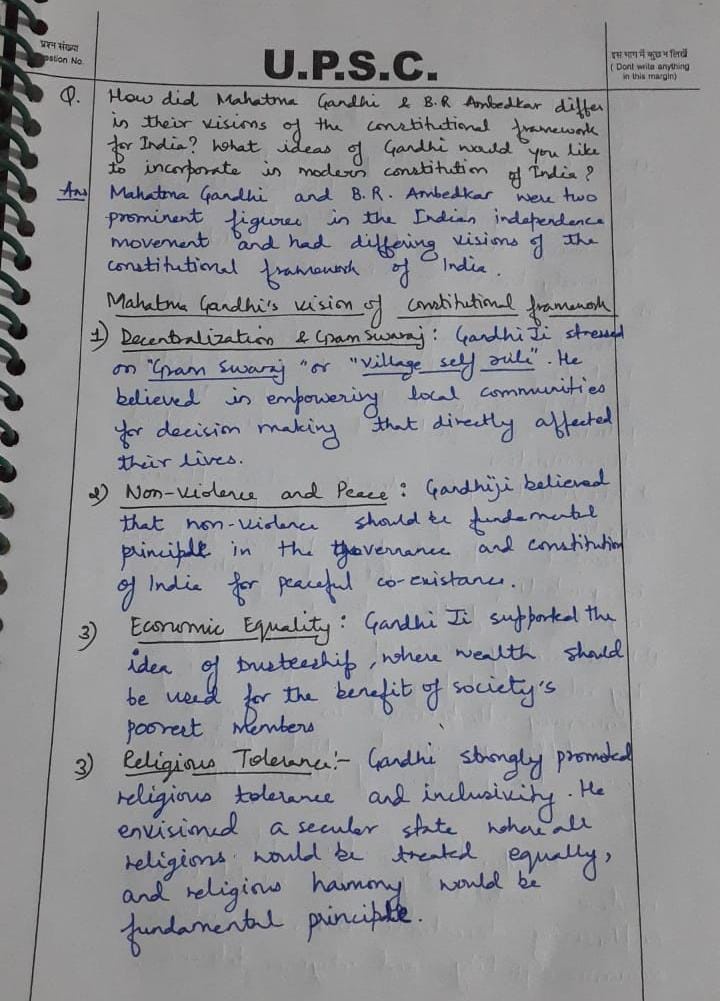 प्रश्न संख्या
estion No.
U.P.S.C.
इस भाग में कुछ न लिखें
( Dont write anything
in this margin)
Q. How did Mahatma Gandhi & B.R Ambedkar differ
in their visions of the constitutional framework
for India? What ideas of Gandhi would you like
to incorporate in modern constitution of India?
Ans Mahatma Gandhi and B.R. Ambedkar were two
prominent figures in the Indian independence
movement and had differing visions of the
constitutional framework of India.
Mahatma Gandhi's vision of constitutional framework
1) Decentralization & Gram Swaraj: Gandhi Ji stressed
on "Gram Swaraj" or "Village self rule". He
believed in empowering local communities
for decision making that directly affected
their lives.
2) Non-Violence and Peace: Gandhiji believed
that non-violence should be fundamental
principle in the governance and constitution
of India for peaceful co-existance.
3) Economic Equality: Gandhi Ji supported the
idea of trusteeship, where wealth should
be used for the benefit of society's
poorest members
3) Religious Tolerance:- Gandhi strongly promoted
religious tolerance and inclusivity. He
envisioned a secular state where all
religions would be treated equally,
and religious harmony would be
fundamental principle.